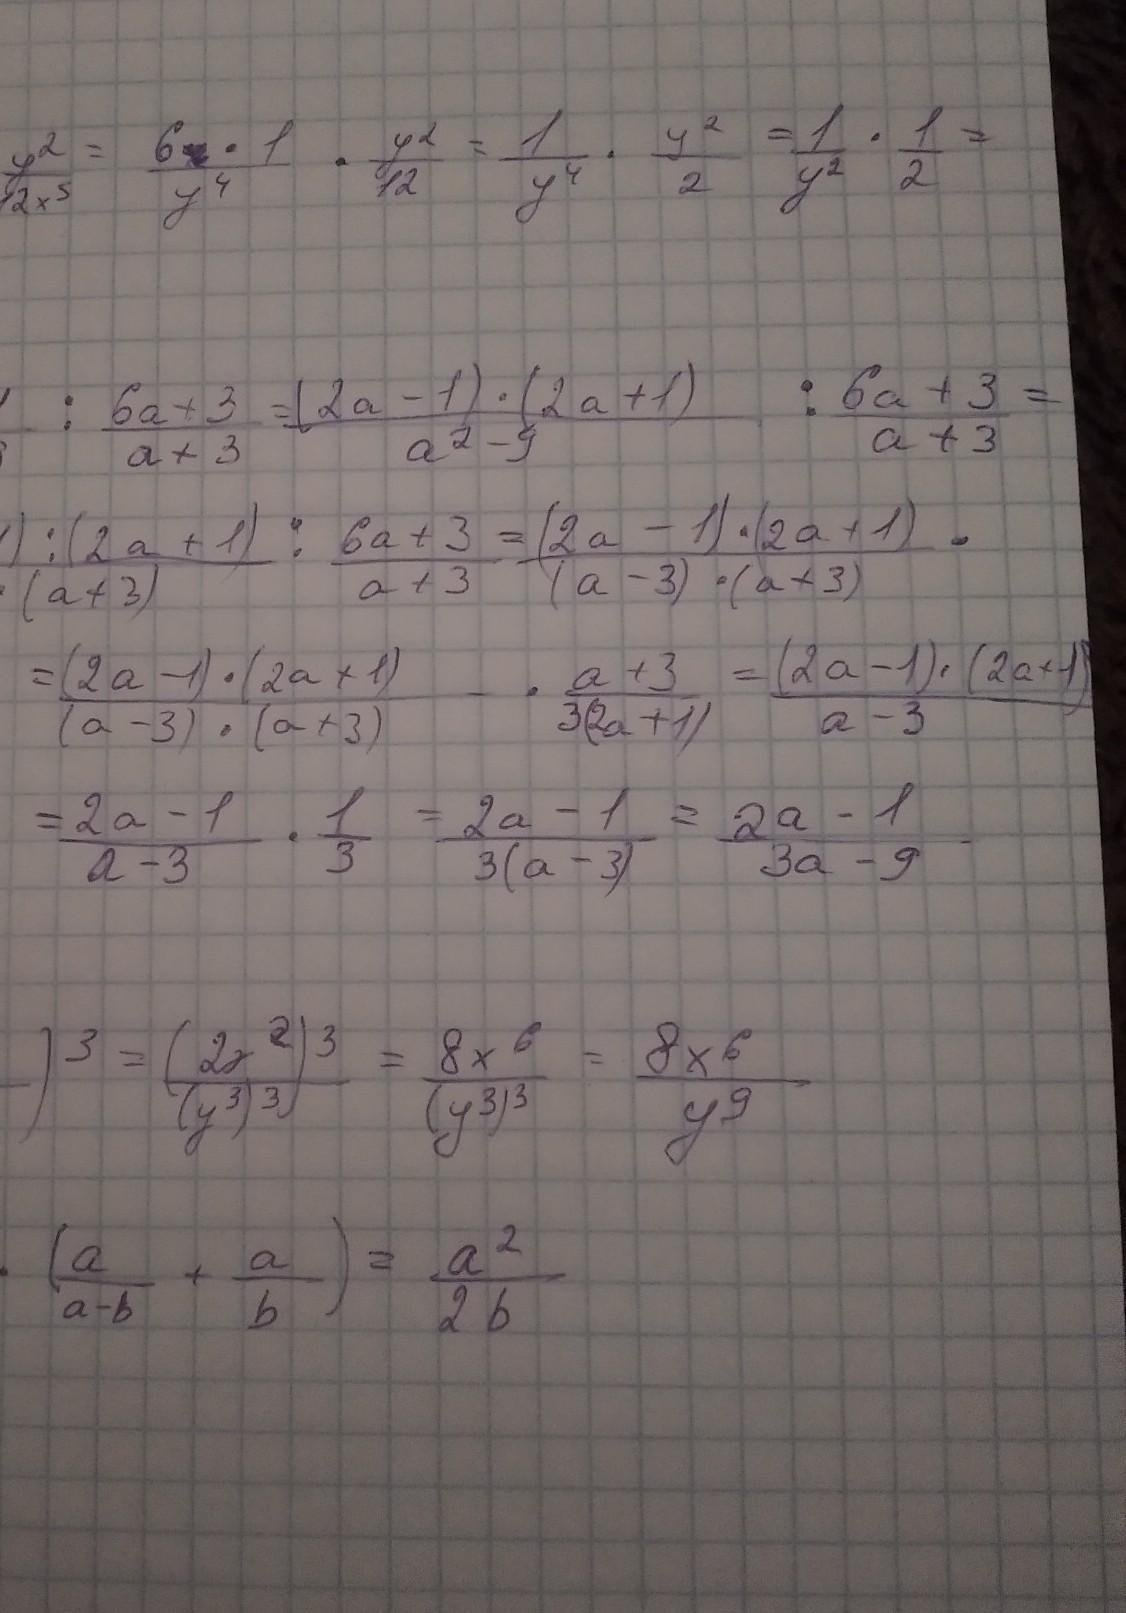 y²/12x⁵ = 6 · 1/y⁴ · y²/12 = 1/y⁴ · y²/2 = 1/y² · 1/2 =
: 6a+3/a+3 = (2a-1)·(2a+1)/a²-9 : 6a+3/a+3 =
):(2a+1)/·(a+3) : 6a+3/a+3 = (2a-1)·(2a+1)/(a-3)·(a+3) ·
= (2a-1)·(2a+1)/(a-3)·(a+3) · a+3/3(2a+1) = (2a-1)·(2a+1)/a-3
= 2a-1/a-3 · 1/3 = 2a-1/3(a-3) = 2a-1/3a-9
)³ = (2x²)³/(y³)³ = 8x⁶/(y³)³ = 8x⁶/y⁹
· (a/a-b + a/b) = a²/2b